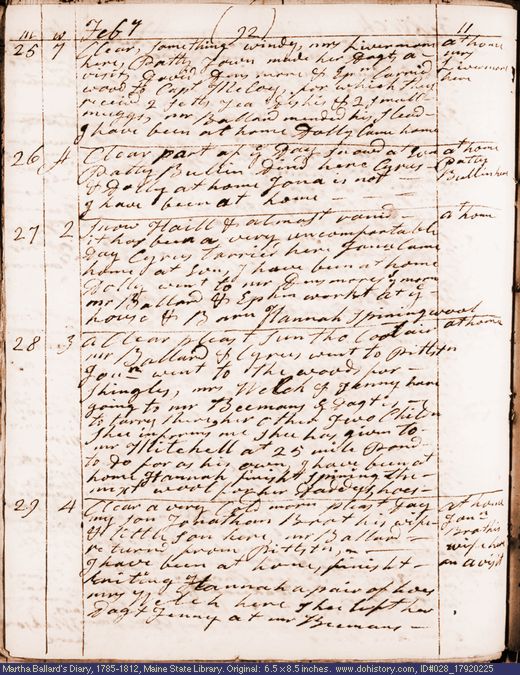 m w Feby (22) 11
25 7 Clear, something windy, mrs Livermore at home
here, Patty Town made her Dagts a mrs
visit, David Densmore & Ephm Carried Livermore
wood to Capt McCoy, for which they here
receivd 2 Setts Tea Dishs & 2 small
muggs, mr Ballard mended his Slead
I have been at home Dolly Came home
26 A Clear part of ye Day Snowd at Evn at home
Patty Bullin Dind here Cyrus Patty
& Dolly at home Jona is not Bullin here
I have been at home
27 2 Snow Haill & almost raind at home
it has been a very uncomfortable
Day Cyrus tarried here Jona Came
home at Evn, I have been at home
Dolly went to mr Densmores, mornn
mr Ballard & Ephm workt at ye
house & Barn Hannah Spining wool
28 3 a Clear pleast Sun tho Cool air at home
mr Ballard & Cyrus went to Pittstn
Jonan went to the wood for
Shingles, mrs Welch & Jenny here
going to mr Beemans & Dagt
to Carry ther, her other Two Childn
Shee informs me Shee has given to
mr Mitchell at 25 mile Pond
to do for as his own I have been at
home Hannah finisht Spining the
mixt wool for her Daddys hoes
29 4 Clear a very Cold morn, pleast Day at home
my son Jonathans Brot his wife Jonan
& little son here, mr Ballard Brot his
returnd from Pittstn, wife here
I have been at home, finisht on a visit
kniting Hannah a pair of hoes
mrs Welch here Shee left her
Dagt Jenny at mr Beemans
Martha Ballard's Diary, 1785-1812, Maine State Library. Original: 6.5 x 8.5 inches. www.dohistory.com, ID#028_17920225